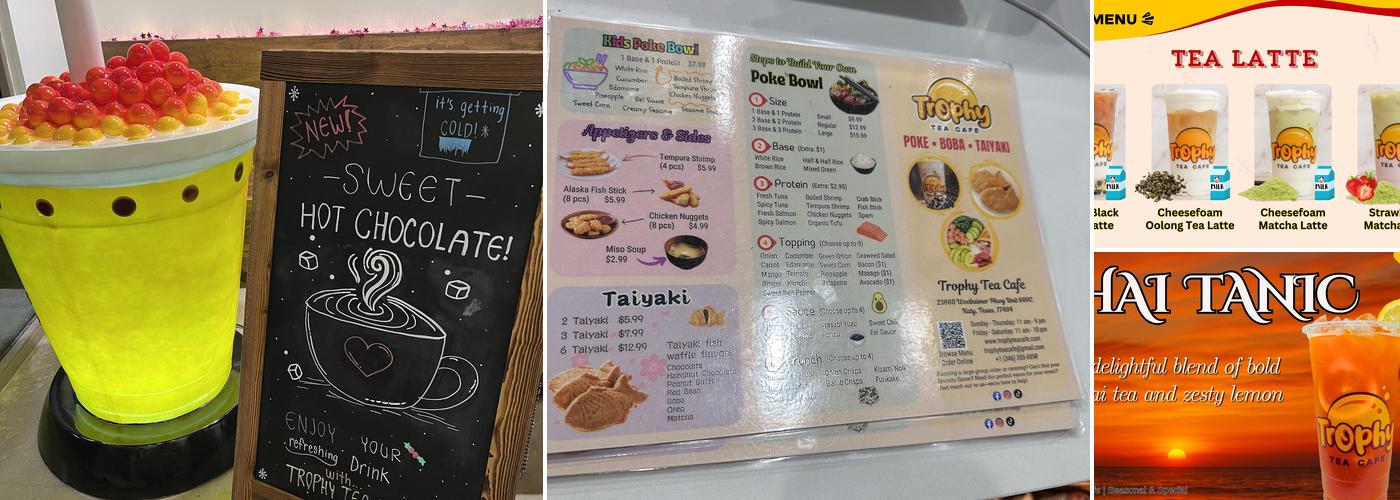 NEW!
it's getting
COLD!*
-SWEET-
HOT CHOCOLATE!
ENJOY YOUR
refreshing Drink
with...
TROPHY TEA
Kids Poke Bowl
1 Base & 1 Protein $7.99
White Rice
Cucumber
Edamame
Pineapple
Sweet Corn
Eel Sauce
Creamy Sesame
Boiled Shrimp
Tempura Shrimp
Chicken Nuggets
Appetizers & Sides
Tempura Shrimp
(4 pcs) $5.99
Alaska Fish Stick
(8 pcs) $5.99
Chicken Nuggets
(8 pcs) $4.99
Miso Soup
$2.99
Taiyaki
2 Taiyaki $5.99
3 Taiyaki $7.99
6 Taiyaki $12.99
Taiyaki fish
waffle flavors
Chocolate
Hazelnut Chocolate
Peanut Butter
Red Bean
Goba
Oreo
Matcha
Steps to Build Your Own
Poke Bowl
1 Size
1 Base & 1 Protein Small $9.99
2 Base & 2 Protein Regular $12.99
3 Base & 3 Protein Large $15.99
2 Base (Extra: $1)
White Rice Half & Half Rice
Brown Rice Mixed Green
3 Protein (Extra: $2.95)
Fresh Tuna Boiled Shrimp Crab Stick
Spicy Tuna Tempura Shrimp Fish Stick
Fresh Salmon Chicken Nuggets Spam
Spicy Salmon Organic Tofu
4 Topping (Choose up to 9)
Onion Cucumber Green Onion Seaweed Salad
Carrot Edamame Sweet Corn Bacon ($1)
Mango Tomato Pineapple Masago ($1)
Ginger Jalapeno Avocado ($1)
Sweet Bell Pepper
Sauce (Choose up to 4)
Wasabi Yuzu Sweet Chili
Ponzu Eel Sauce
Crunch (Choose up to 4)
Onion Crisps Kizami Nori
Garlic Crisps Furikake
Trophy
TEA CAFE
POKE • BOBA • TAIYAKI
Trophy Tea Cafe
23660 Westheimer Pkwy Unit 600C
Katy, Texas, 77494
Sunday - Thursday: 11 am - 9 pm
Friday - Saturday: 11 am - 10 pm
www.trophyteacafe.com
trophyteacafe@gmail.com
Browse Menu
Order Online
MENU
TEA LATTE
Trophy
TEA CAFE
MILK
Trophy
TEA CAFE
MILK
Black
Cheesefoam
Oolong Tea Latte
Cheesefoam
Matcha Latte
HAI TANIC
delightful blend of bold
ai tea and zesty lemon
Trophy
TEA CAFE
| Seasonal & Special